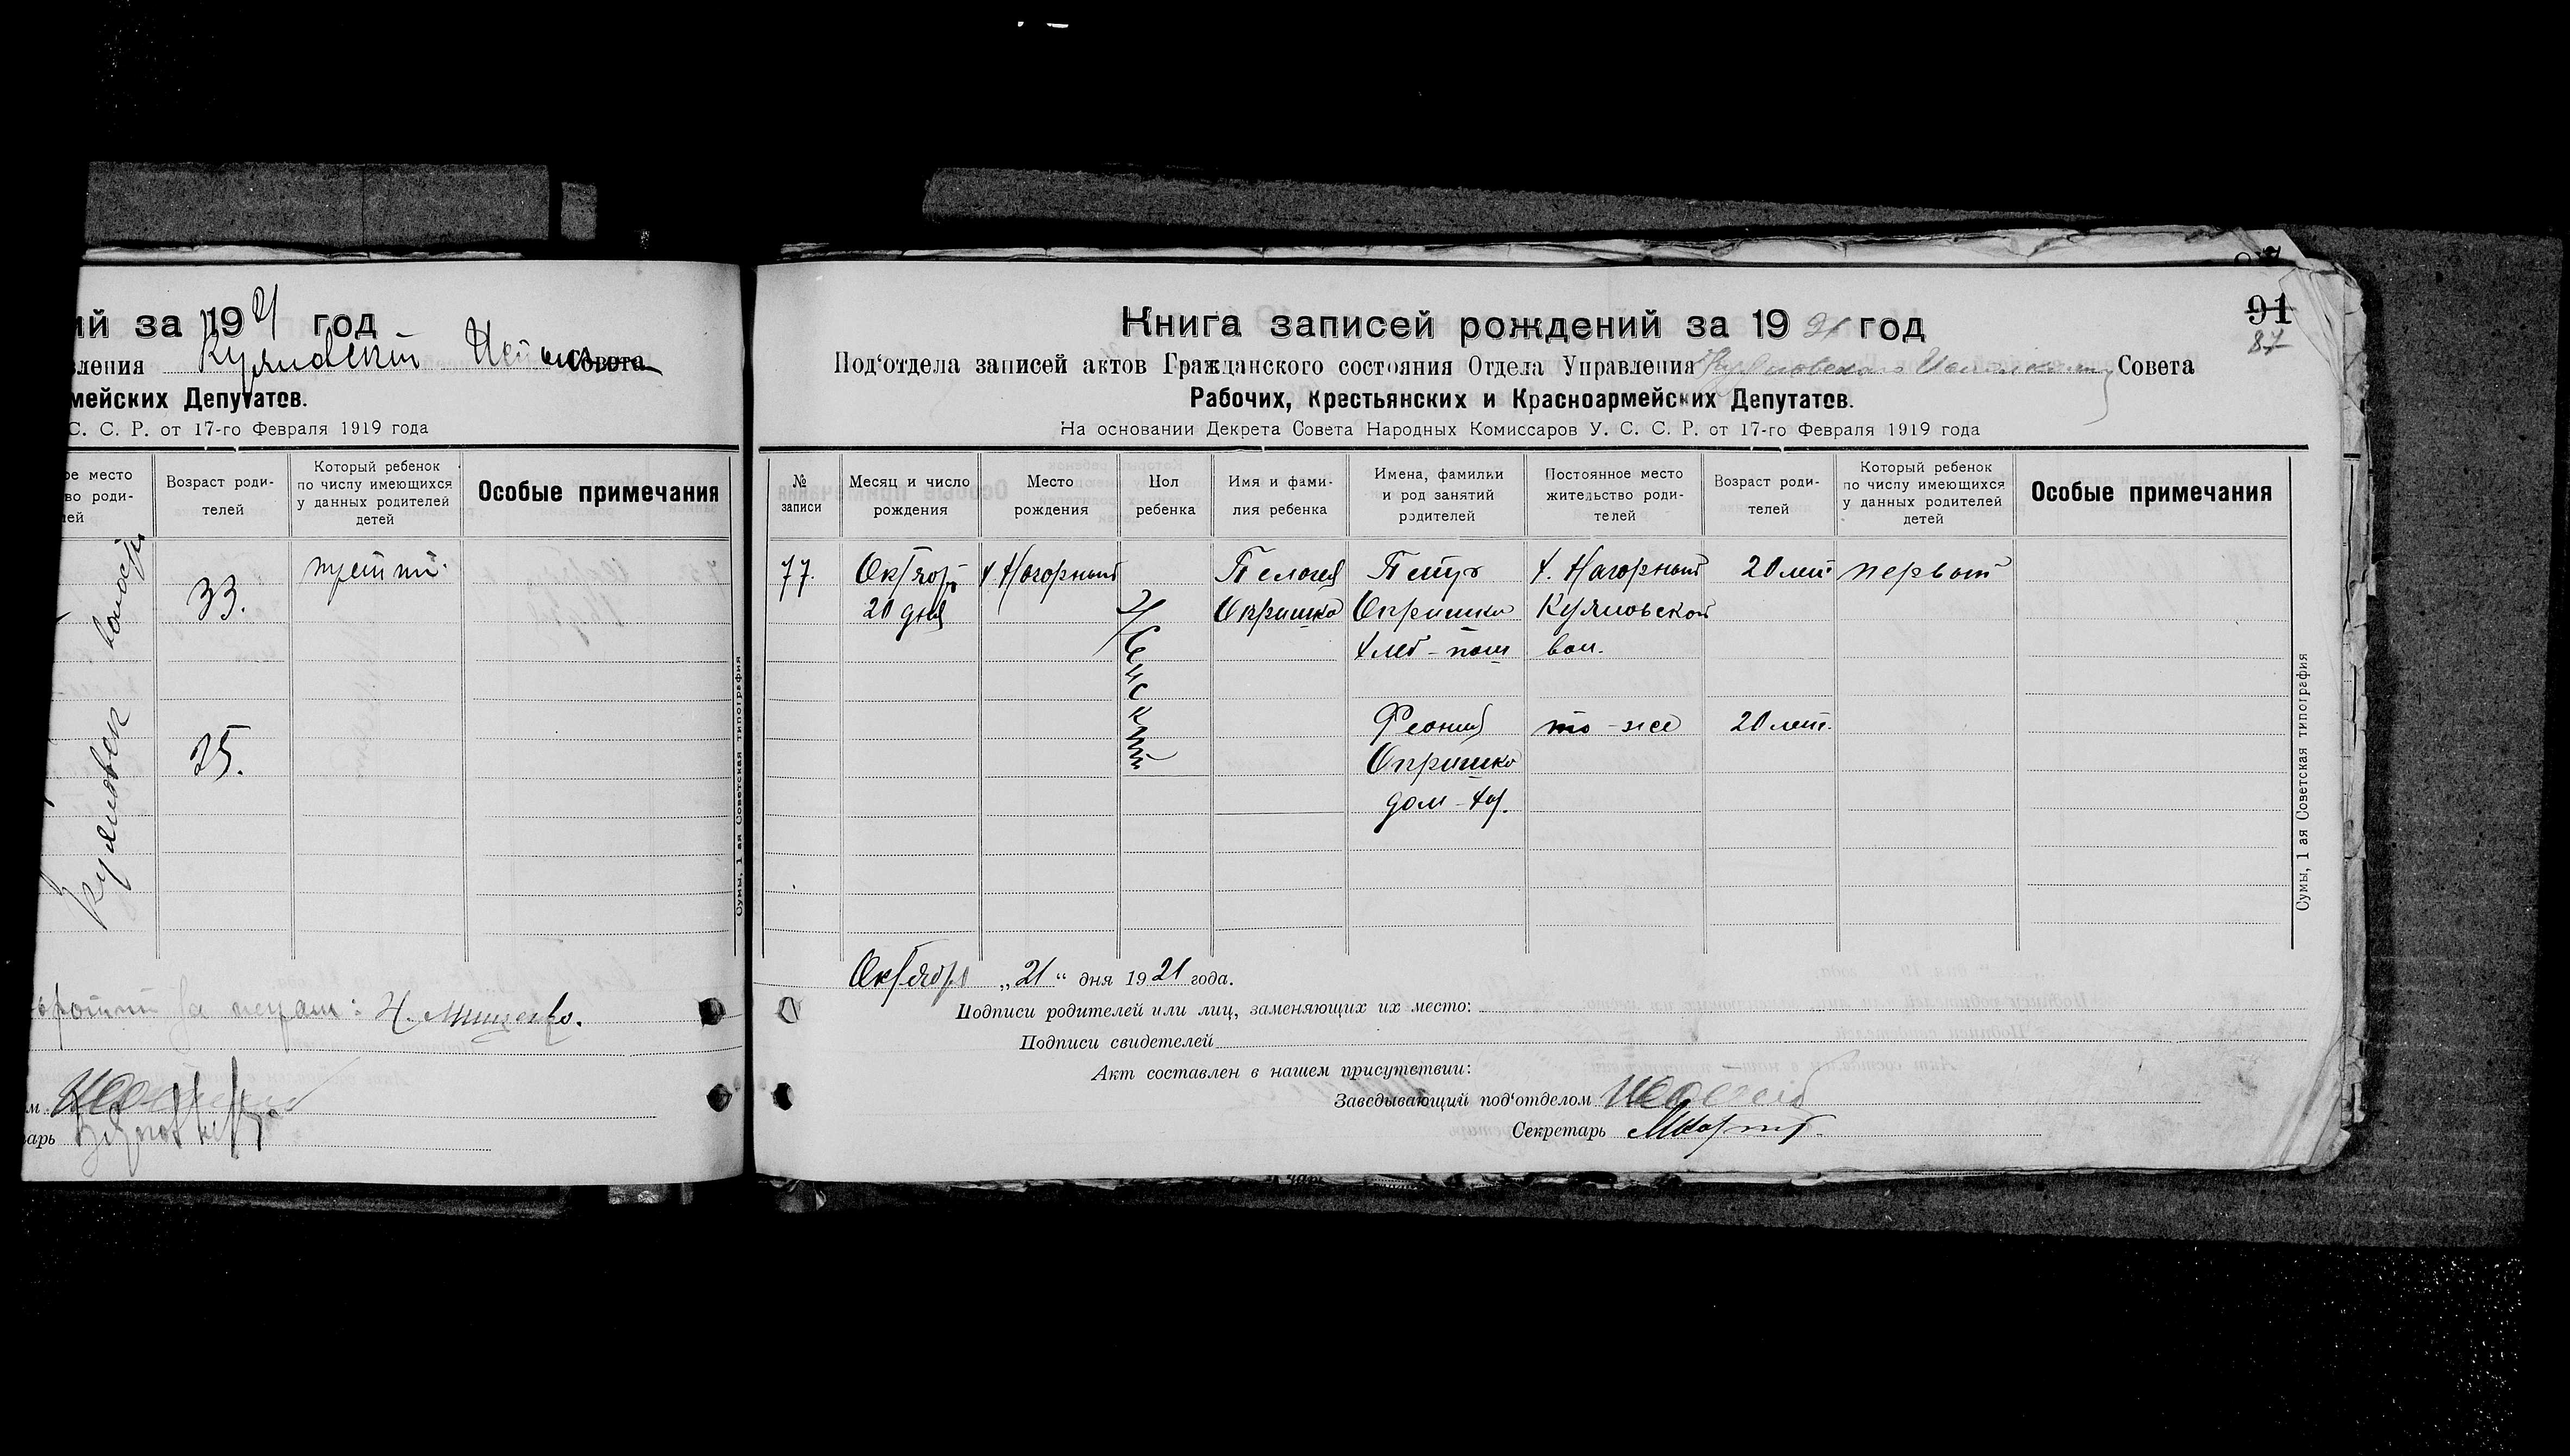 ий за 1921 год
вления Исполкома Совета
мейских Депутатов.
С. С. Р. от 17-го Февраля 1919 года
ое место
во роди-
лей
Возраст роди-
телей
Который ребенок
по числу имеющихся
у данных родителей
детей
Особые примечания
33.
третий.
25.
волость
Сумы, 1 ая Советская типография
Н. Мищенко.
м
арь
91
87
Книга записей рождений за 1921 год
Под'отдела записей актов Гражданского состояния Отдела Управления Исполкома Совета
Рабочих, Крестьянских и Красноармейских Депутатов.
На основании Декрета Совета Народных Комиссаров У. С. С. Р. от 17-го Февраля 1919 года
№
записи
Месяц и число
рождения
Место
рождения
Пол
ребенка
Имя и фами-
лия ребенка
Имена, фамилии
и род занятий
родителей
Постоянное место
жительство роди-
телей
Возраст роди-
телей
Который ребенок
по числу имеющихся
у данных родителей
детей
Особые примечания
77. Октябр Х Нагорный Пелагея Петр Х. Нагорный 20 лет первый
20 дня Опришко Опришко
хлеб-паш вол.
Женский
Феония то-же 20 лет.
Опришко
дом-хоз.
Сумы, 1 ая Советская типография
Октября „21“ дня 1921 года.
Подписи родителей или лиц, заменяющих их место:
Подписи свидетелей
Акт составлен в нашем присутствии:
Заведывающий под'отделом
Секретарь